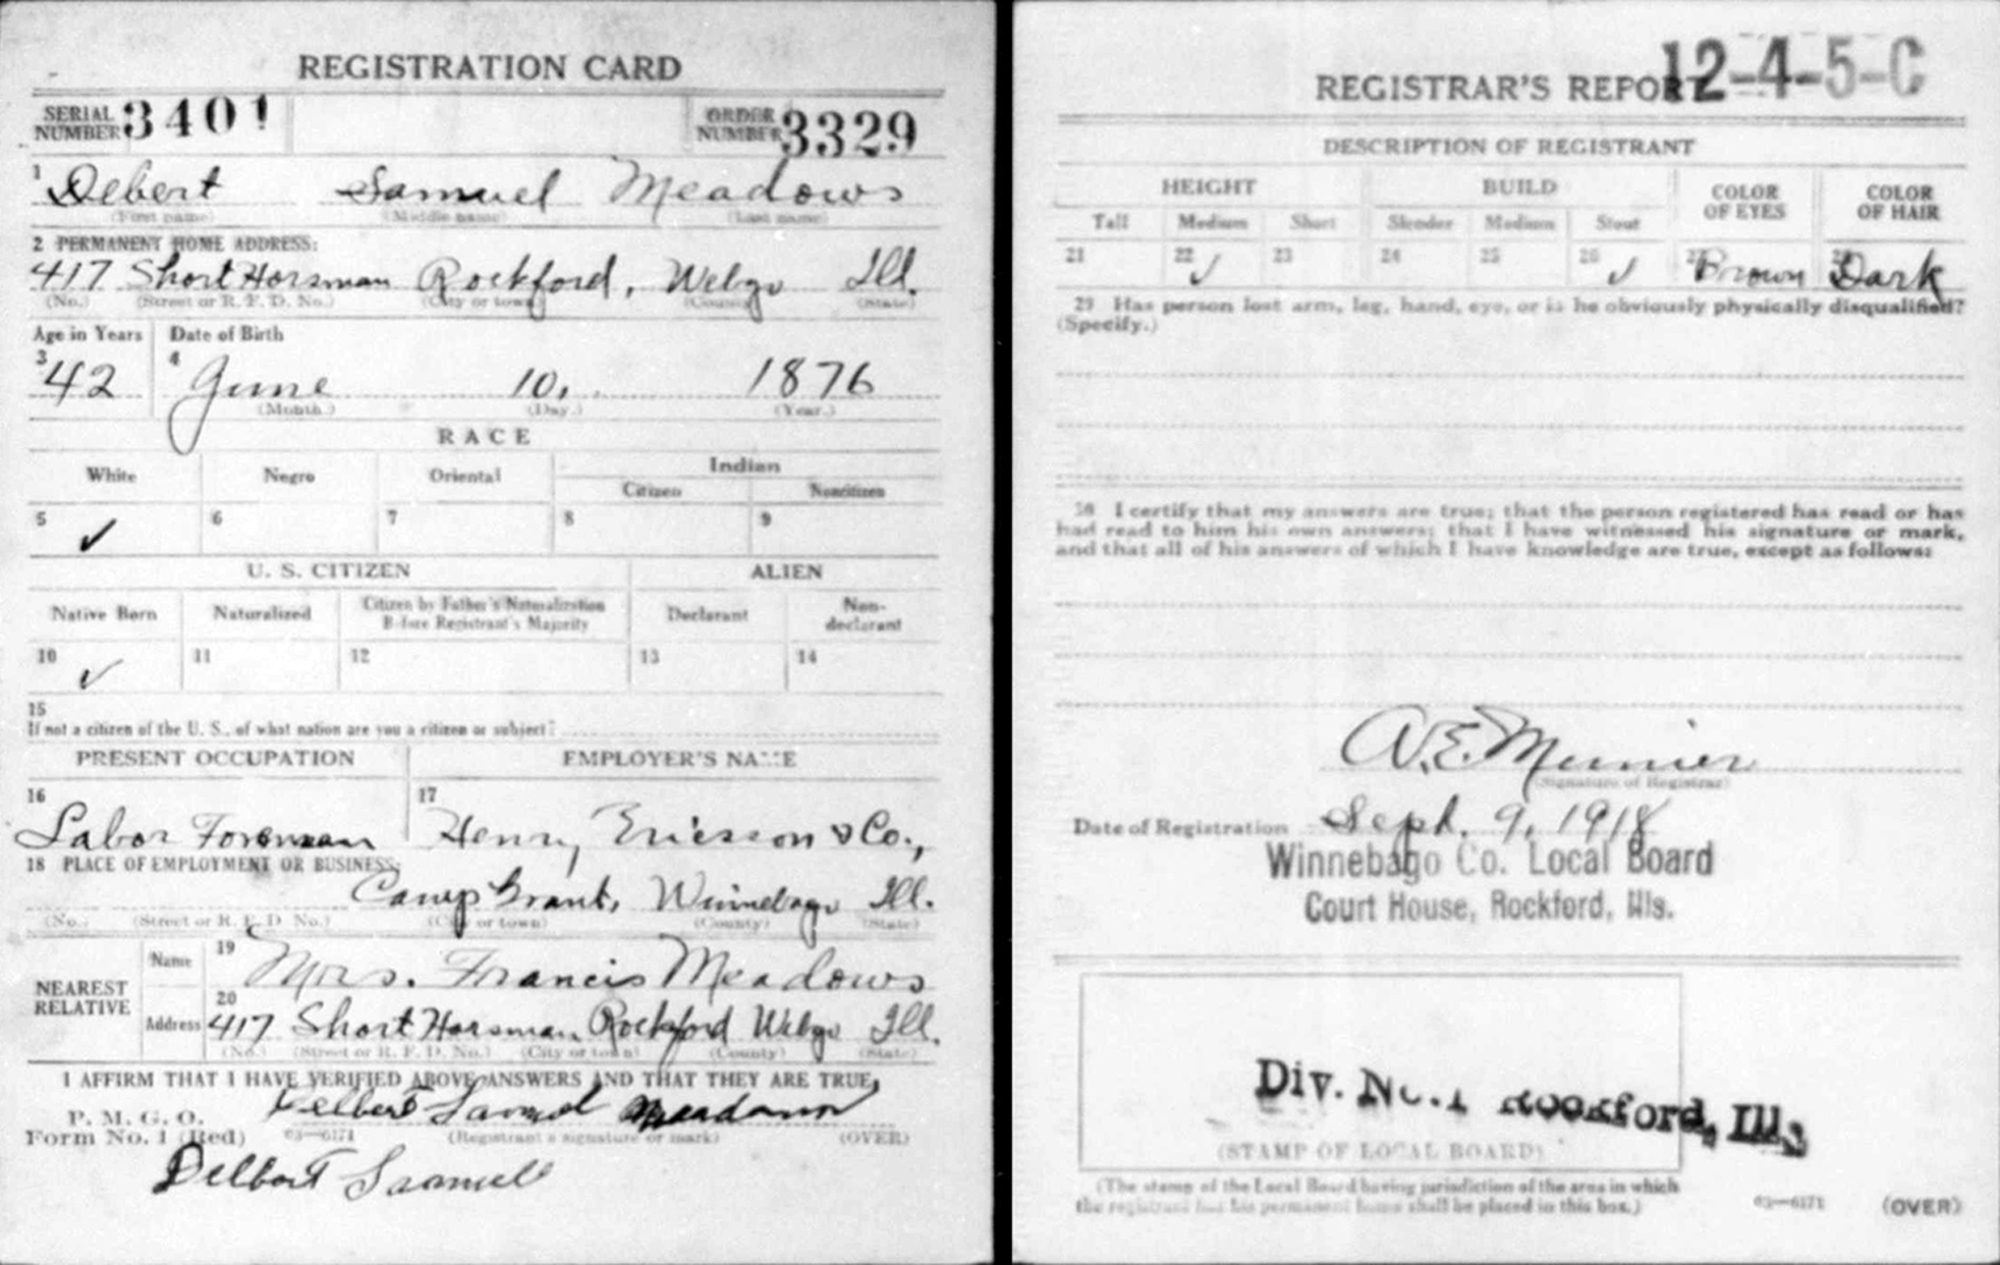 REGISTRATION CARD
SERIAL NUMBER 3401 ORDER NUMBER 3329
1 Debert Samuel Meadows
(First name) (Middle name) (Last name)
2 PERMANENT HOME ADDRESS:
417 Short Horsman Rockford, Webgo Ill.
(No.) (Street or R. F. D. No.) (City or town) (County) (State)
Age in Years Date of Birth
3 42 4 June 10, 1876
(Month.) (Day.) (Year.)
RACE
White Negro Oriental Indian
Citizen Noncitizen
5 ✓ 6 7 8 9
U. S. CITIZEN ALIEN
Native Born Naturalized Citizen by Father's Naturalization Before Registrant's Majority Declarant Non-declarant
10 ✓ 11 12 13 14
15
If not a citizen of the U. S., of what nation are you a citizen or subject?
PRESENT OCCUPATION EMPLOYER'S NAME
16 17
Labor Foreman Henry Ericsson & Co.,
18 PLACE OF EMPLOYMENT OR BUSINESS:
Camp Grant, Winnebago Ill.
(No.) (Street or R. F. D. No.) (City or town) (County) (State)
NEAREST RELATIVE
Name 19 Mrs. Francis Meadows
Address 20 417 Short Horsman, Rockford Webgo Ill.
(No.) (Street or R. F. D. No.) (City or town) (County) (State)
I AFFIRM THAT I HAVE VERIFIED ABOVE ANSWERS AND THAT THEY ARE TRUE,
P. M. G. O.
Form No. 1 (Red) 03—6171 Delbert Samuel Meadows
(Registrant's signature or mark) (OVER)
Delbert Saamuel
REGISTRAR'S REPORT 12-4-5-C
DESCRIPTION OF REGISTRANT
HEIGHT BUILD COLOR OF EYES COLOR OF HAIR
Tall Medium Short Slender Medium Stout
21 22 ✓ 23 24 25 26 ✓ 27 Brown 28 Dark
29 Has person lost arm, leg, hand, eye, or is he obviously physically disqualified?
(Specify.)
30 I certify that my answers are true; that the person registered has read or has
had read to him his own answers; that I have witnessed his signature or mark,
and that all of his answers of which I have knowledge are true, except as follows:
A. E. Munier
(Signature of Registrar)
Date of Registration Sept. 9, 1918
Winnebago Co. Local Board
Court House, Rockford, Ills.
Div. No. 1 Rockford, Ills
(STAMP OF LOCAL BOARD)
(The stamp of the Local Board having jurisdiction of the area in which
the registrant has his permanent home shall be placed in this box.)
03—6171 (OVER)